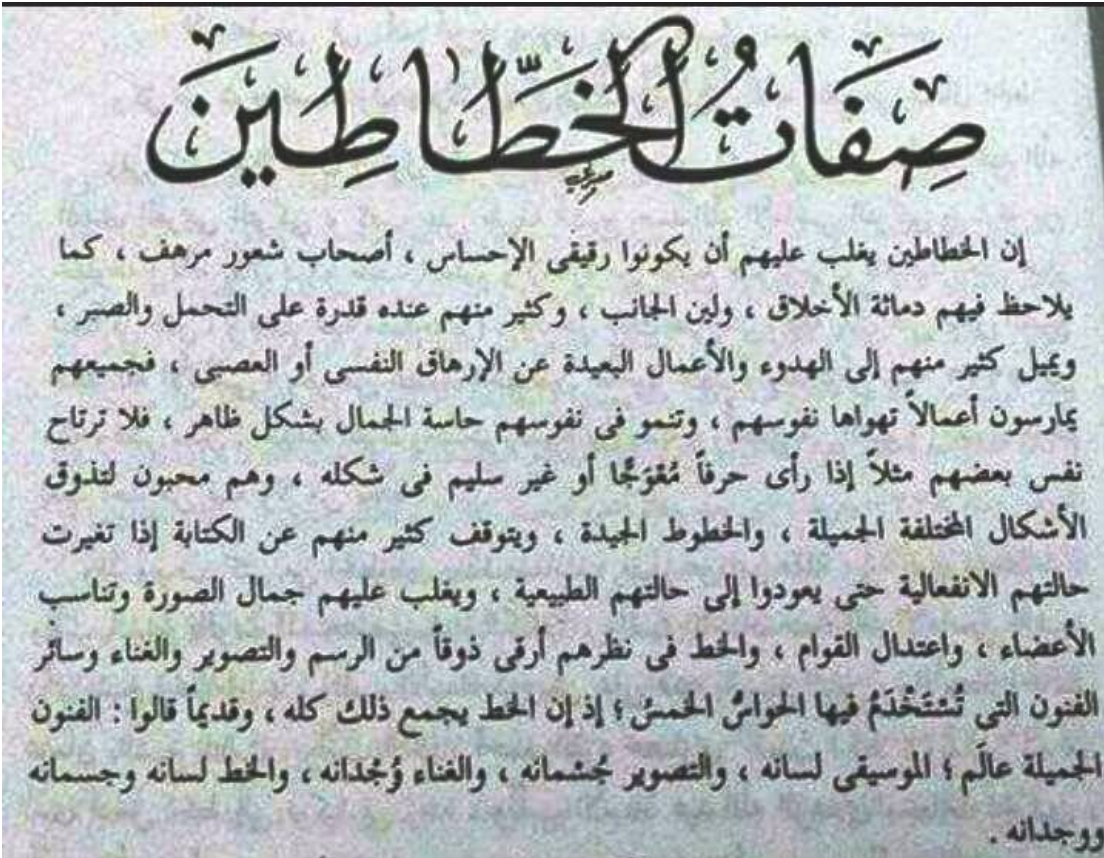 صِفَاتُ الخَطَّاطِينَ
إن الخطاطين يغلب عليهم أن يكونوا رقيقى الإحساس ، أصحاب شعور مرهف ، كما
يلاحظ فيهم دماثة الأخلاق ، ولين الجانب ، وكثير منهم عنده قدرة على التحمل والصبر ،
ويميل كثير منهم إلى الهدوء والأعمال البعيدة عن الإرهاق النفسى أو العصبى ، فجميعهم
يمارسون أعمالاً تهواها نفوسهم ، وتنمو فى نفوسهم حاسة الجمال بشكل ظاهر ، فلا ترتاح
نفس بعضهم مثلاً إذا رأى حرفاً مُعْوَجًّا أو غير سليم فى شكله ، وهم محبون لتذوق
الأشكال المختلفة الجميلة ، والخطوط الجيدة ، ويتوقف كثير منهم عن الكتابة إذا تغيرت
حالتهم الانفعالية حتى يعودوا إلى حالتهم الطبيعية ، ويغلب عليهم جمال الصورة وتناسب
الأعضاء ، واعتدال القوام ، والخط فى نظرهم أرقى ذوقاً من الرسم والتصوير والغناء وسائر
الفنون التى تُسْتَخْدَمُ فيها الحواسُّ الخمسُ ؛ إذ إن الخط يجمع ذلك كله ، وقديماً قالوا : الفنون
الجميلة عالَم ؛ الموسيقى لسانه ، والتصوير جُسْمانه ، والغناء وُجْدانه ، والخط لسانه وجسمانه
ووجدانه .